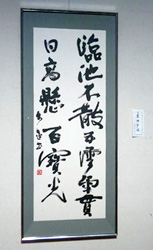 臨池不散五雲氣貫
日高懸百寶光